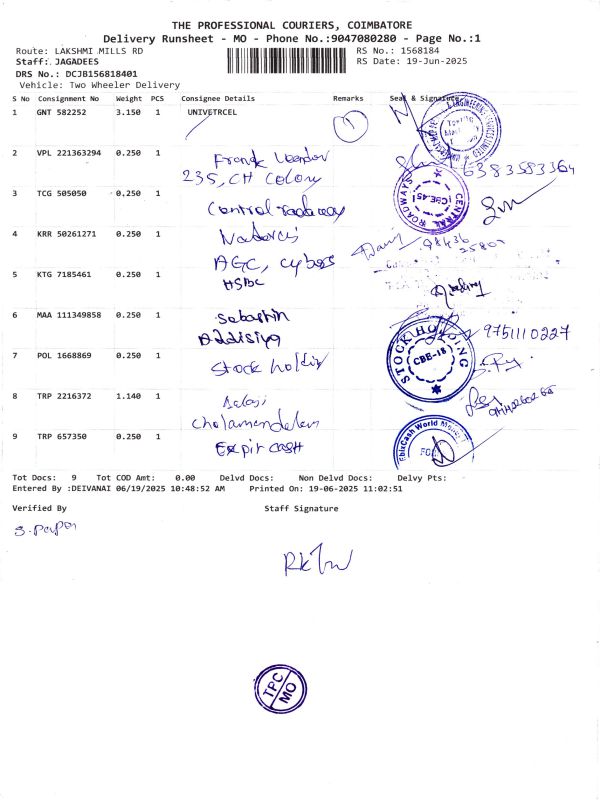 THE PROFESSIONAL COURIERS, COIMBATORE
Delivery Runsheet - MO - Phone No.:9047080280 - Page No.:1
Route: LAKSHMI MILLS RD RS No.: 1568184
Staff: JAGADEES RS Date: 19-Jun-2025
DRS No.: DCJB156818401
Vehicle: Two Wheeler Delivery
S No Consignment No Weight PCS Consignee Details Remarks Seal & Signature
1 GNT 582252 3.150 1 UNIVETRCEL 1
2 VPL 221363294 0.250 1 Franck
235, CH Colony 6383583364
3 TCG 505050 0.250 1 Central roadway
CENTRAL ROADWAYS CBE.45
4 KRR 50261271 0.250 1
AGC, cybers
5 KTG 7185461 0.250 1 HSBC
6 MAA 111349858 0.250 1 Sebastin
Addisiya 9751110227
7 POL 1668869 0.250 1 Stock holdin
STOCK HOLDING CBE-18
8 TRP 2216372 1.140 1 Balaji
Cholamandalam
9 TRP 657350 0.250 1 Expir cash
EbixCash World Money
Tot Docs: 9 Tot COD Amt: 0.00 Delvd Docs: Non Delvd Docs: Delvy Pts:
Entered By :DEIVANAI 06/19/2025 10:48:52 AM Printed On: 19-06-2025 11:02:51
Verified By Staff Signature
TPC
MO